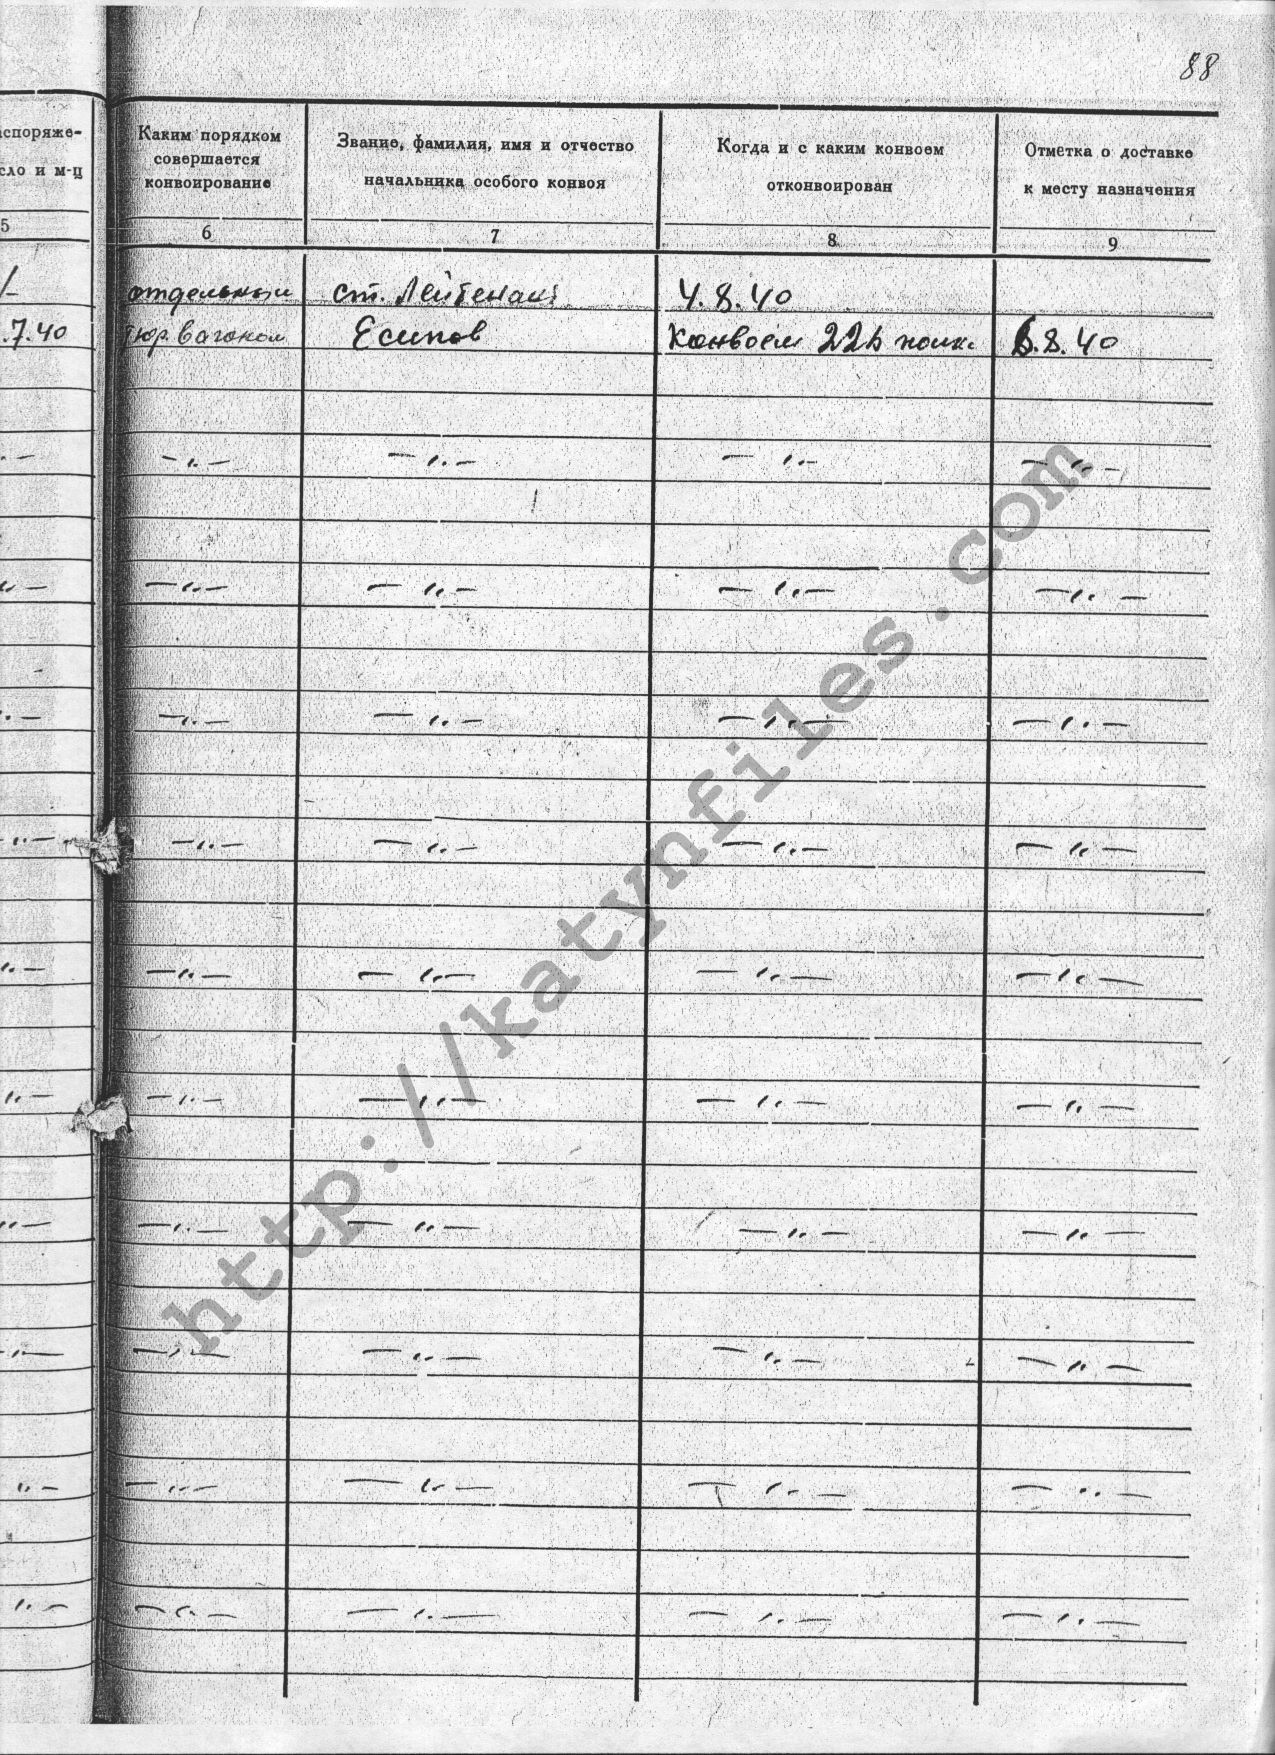 88
аспоряже-
сло и м-ц
5
Каким порядком
совершается
конвоирование
6
Звание, фамилия, имя и отчество
начальника особого конвоя
7
Когда и с каким конвоем
отконвоирован
8
Отметка о доставке
к месту назначения
9
отдельным ст. Лейтенант 4.8.40
.7.40 тюр. вагоном Есипов Конвоем 226 полк. 6.8.40
– " – – " – – " – – " – – " –
– " – – " – – " – – " – – " –
– " – – " – – " – – " – – " –
– " – – " – – " – – " – – " –
– " – – " – – " – – " – – " –
– " – – " – – " – – " – – " –
– " – – " – – " – – " – – " –
– " – – " – – " – – " – – " –
– " – – " – – " – – " – – " –
– " – – " – – " – – " – – " –
http://katynfiles.com